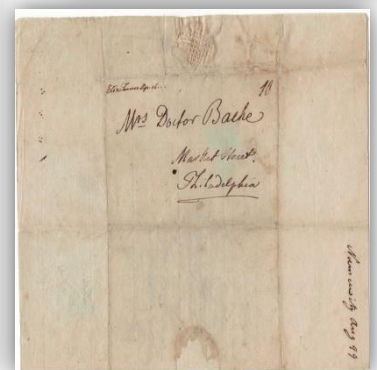 10
Mrs Doctor Bache
Market Street
Philadelphia
Aug 99